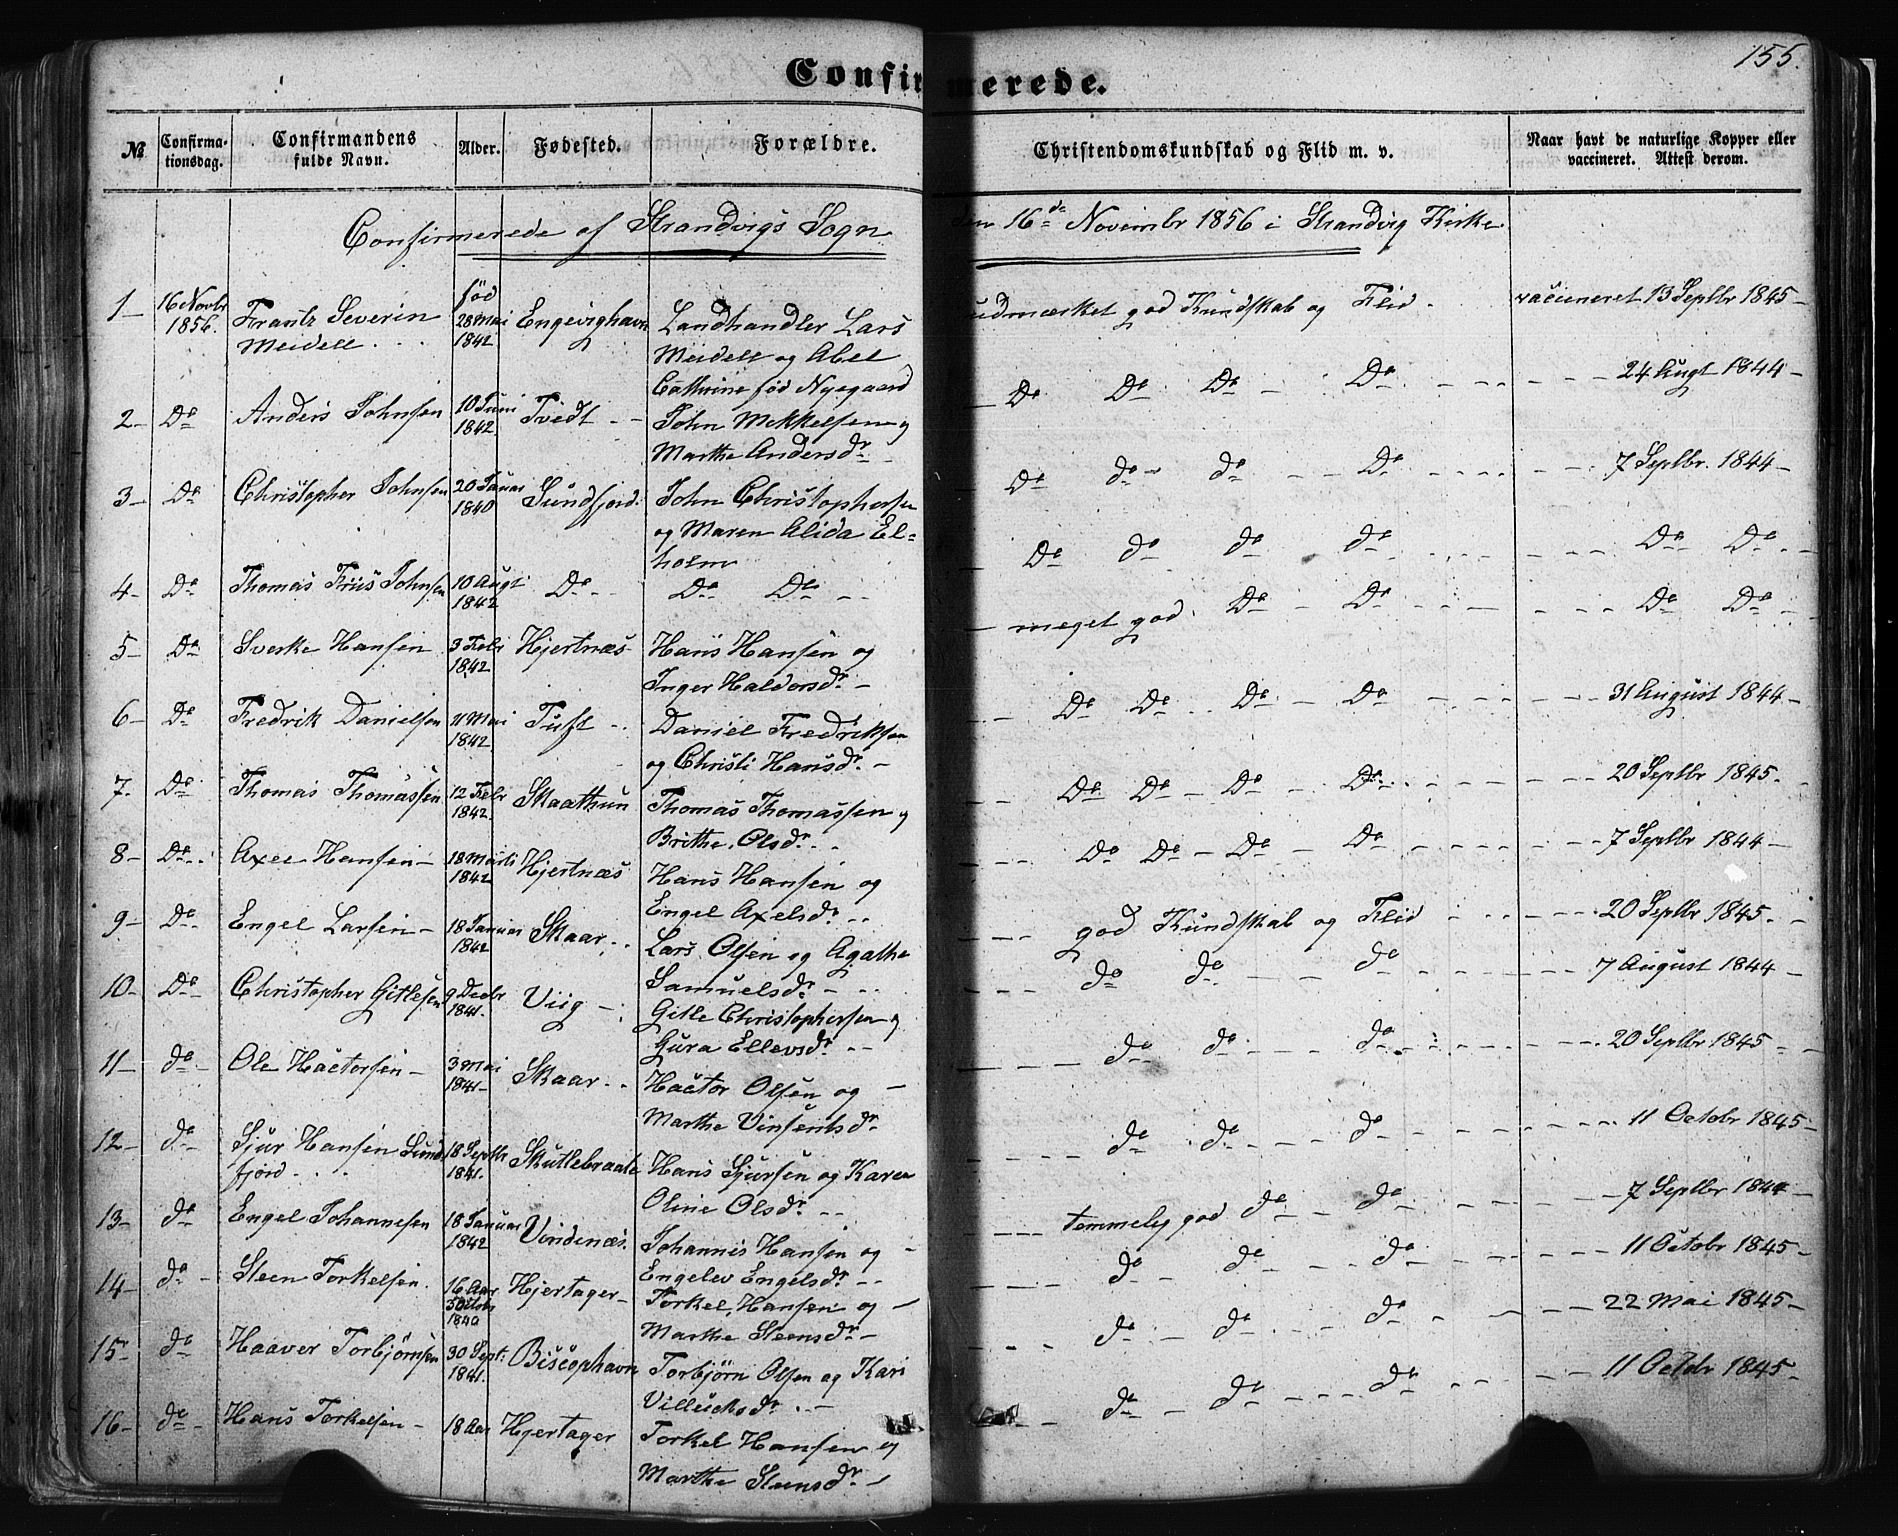 155.
Confirmerede.
№ Confirma-tionsdag. Confirmandens fulde Navn. Alder. Fødested. Forældre. Christendomskundskab og Flid m. v. Naar havt de naturlige Kopper eller vaccineret. Attest derom.
Confirmerede af Strandvigs Sogn den 16de Novembr 1856 i Strandvig Kirke
1 16 Novbr 1856. Frantz Severin Meidell fød 28 Mai 1842 Engevighavn Landhandler Lars Meidell og Abel Cathrine fød Nyegaard udmærket god Kundskab og Flid. vaccineret 13 Septbr 1845
2 Do Anders Johnsen 10 Juni 1842. Tvedt John Mikkelsen og Marthe Andersdr Do Do Do Do 24 Augt 1844
3 Do Christopher Johnsen 20 Januar 1840 Sundfjord John Christophersen og Maren Alida Elholm Do do do Do 7 Septbr. 1844
4 Do Thomas Friis Johnsen 10 Augt 1842 Do Do Do Do do do do Do Do
5 Do Sverke Hansen 3 Febr 1842 Hjertnæs Hans Hansen og Inger Haldorsdr meget god Do Do Do Do
6 Do Fredrik Danielsen 11 Mai 1842 Tuft Daniel Fredriksen og Christi Hansdr. Do Do Do Do 31 August 1844
7 Do Thomas Thomassen 12 Febr 1842. Skaathun Thomas Thomassen og Brithe Olsdr. Do Do Do Do 20 Septbr 1845.
8 Do Axel Hansen 18 Marti 1842 Hjertnæs Hans Hansen og Engel Axelsdr Do Do Do Do 7 Septbr 1844
9 Do Engel Larsen 18 Januar 1842 Skaar Lars Olsen og Agathe Samuelsdr god Kundskab og Flid 20 Septbr 1845.
10 Do Christopher Gitlesen 9 Decbr 1841. Viig Gitle Christophersen og Gura Ellevsdr. do do do 7 August 1844
11 do Ole Hactorsen 3 Mai 1841 Skaar Hactor Olsen og Marthe Vinsentsdr do do do 20 Septbr 1845
12 do Sjur Hansen Sundfjord 18 Septbr 1841. Skutlebraate Hans Sjursen og Karen Oline Olsdr do do do 11 Octobr 1845
13 do Engel Johannesen 18 Januar 1842 Vindenæs. Johannis Hansen og Engelev Engelsdr temmelig god do do 7 Septbr 1844
14 do Steen Torkelsen 16 Aar 1840 Hjertager Torkel Hansen og Marthe Steensdr do do do 11 Octobr 1845
15 do Haaver Torbjørnsen 30 Sept: 1841. Biscophavn Torbjørn Olsen og Kari do do do 22 Mai 1845
16 do Hans Torkelsen 18 Aar Hjertager Torkel Hansen og Marthe Steensdr do do do 11 Octbr 1845